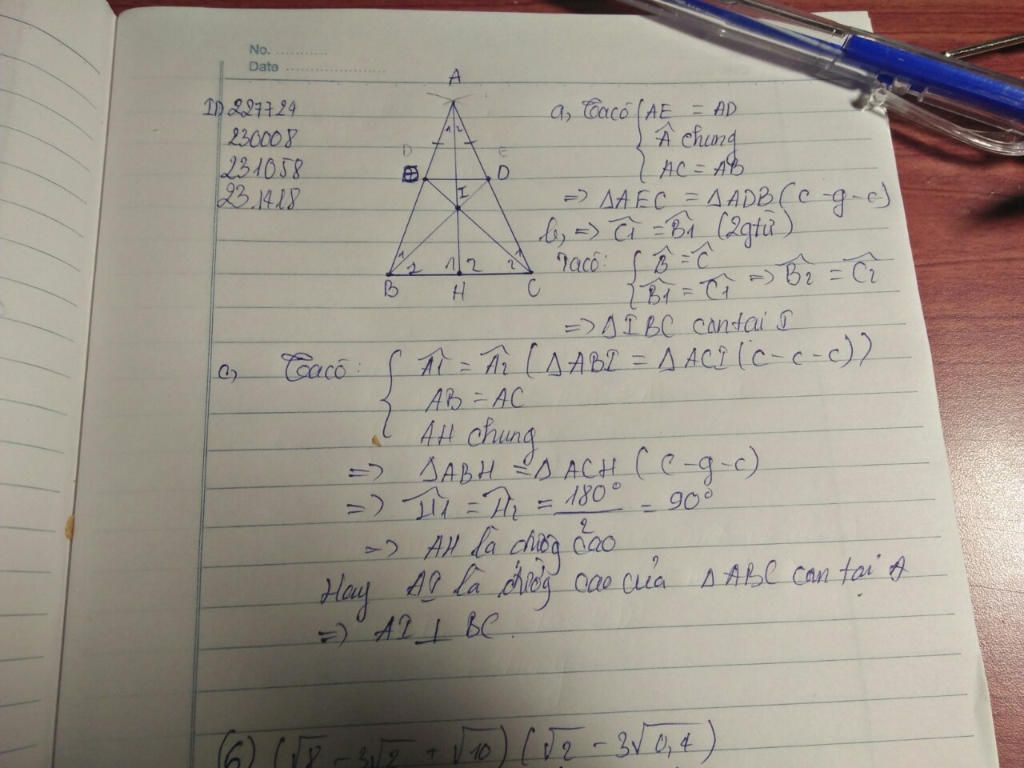 No. ............
Date ........................
ID 227724
230008
231058
231418
A
1 2
D E
D
I
1 2 1 2 2 1
B H C
a, Ta có { AE = AD
Â chung
AC = AB
=> ΔAEC = ΔADB (c-g-c)
b, => Ĉ1 = B̂1 (2gtư)
Ta có: { B̂ = Ĉ
B̂1 = Ĉ1 => B̂2 = Ĉ2
=> ΔIBC cân tại I
c, Ta có: { Â1 = Â2 (ΔABI = ΔACI (c-c-c))
AB = AC
AH chung
=> ΔABH = ΔACH (c-g-c)
=> Ĥ1 = Ĥ2 = 180°/2 = 90°
=> AH là đường cao
Hay AI là đường cao của ΔABC cân tại A
=> AI ⊥ BC.
(6) (√8 - 3√2 + √10) (√2 - 3√0,4)